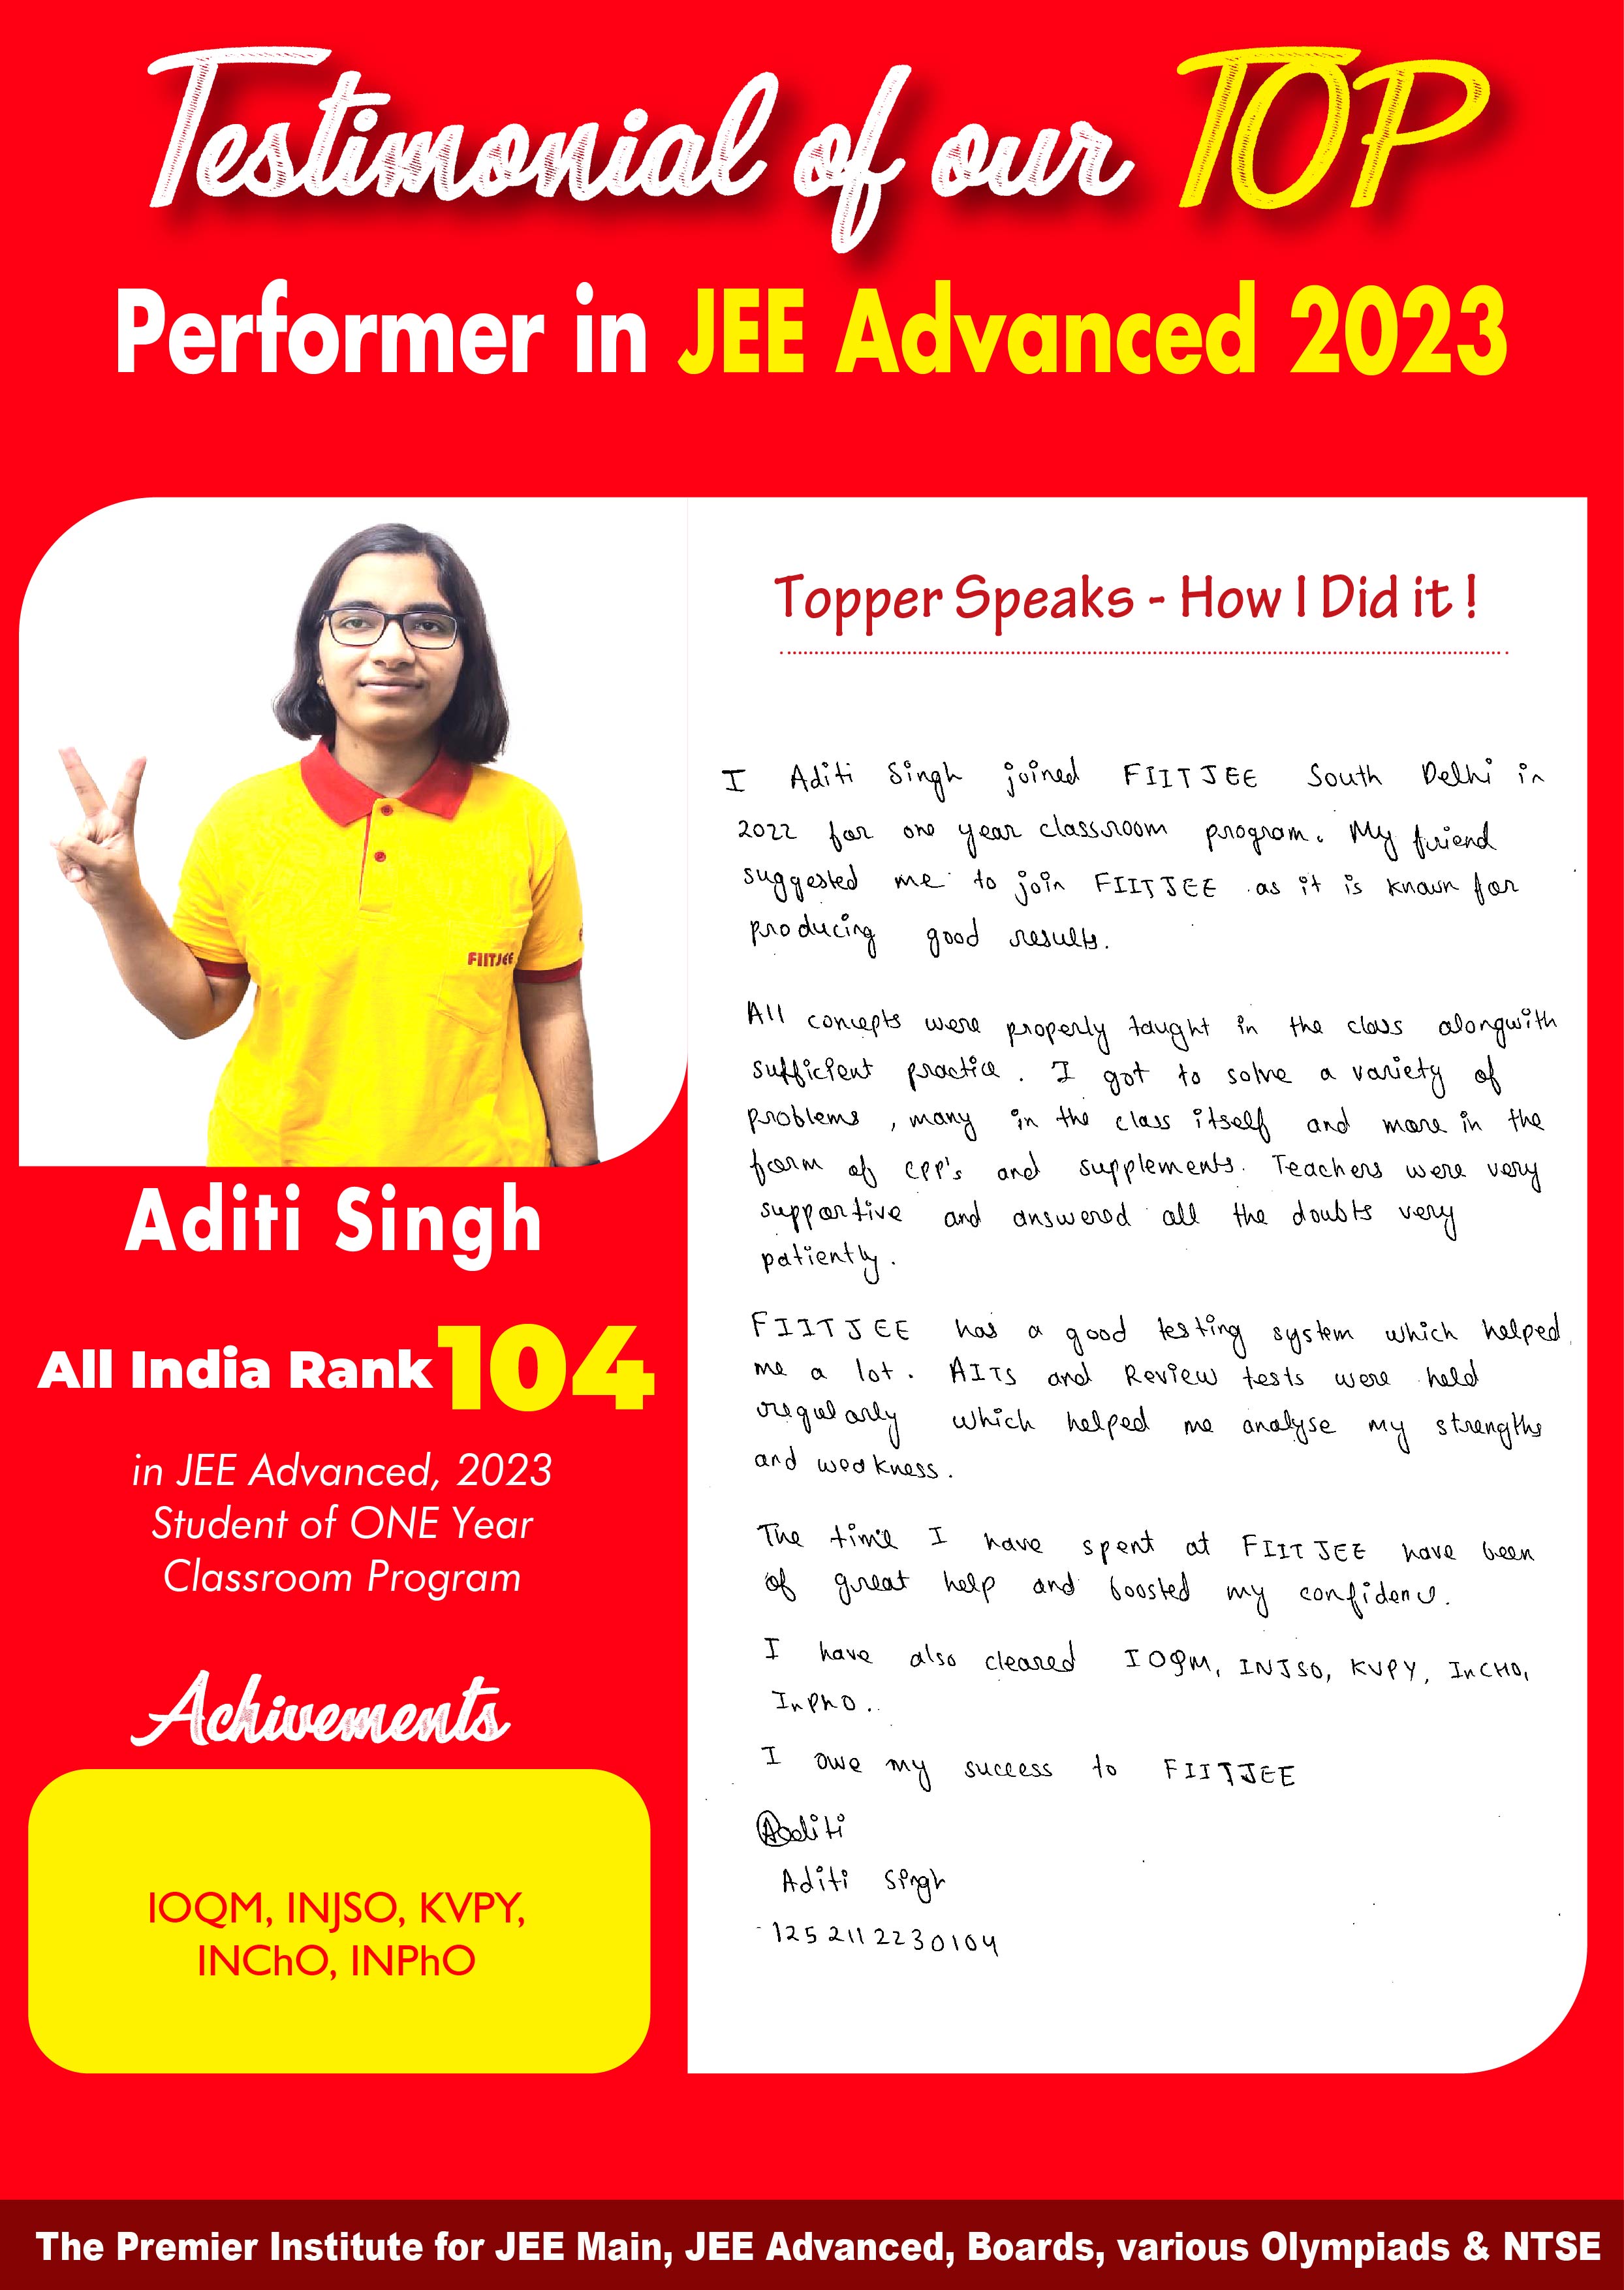 Testimonial of our TOP
Performer in JEE Advanced 2023
FIITJEE
Aditi Singh
All India Rank 104
in JEE Advanced, 2023
Student of ONE Year
Classroom Program
Achivements
IOQM, INJSO, KVPY,
INChO, INPhO
Topper Speaks - How I Did it !
I Aditi Singh joined FIITJEE South Delhi in
2022 for one year classroom program. My friend
suggested me to join FIITJEE as it is known for
producing good results.
All concepts were properly taught in the class alongwith
sufficient practice. I got to solve a variety of
problems, many in the class itself and more in the
form of CPP's and supplements. Teachers were very
supportive and answered all the doubts very
patiently.
FIITJEE has a good testing system which helped
me a lot. AITs and Review tests were held
regularly which helped me analyse my strengths
and weakness.
The time I have spent at FIITJEE have been
of great help and boosted my confidence.
I have also cleared IOQM, INJSO, KVPY, InCHO,
InPhO.
I owe my success to FIITJEE
Aditi
Aditi Singh
1252112230104
The Premier Institute for JEE Main, JEE Advanced, Boards, various Olympiads & NTSE